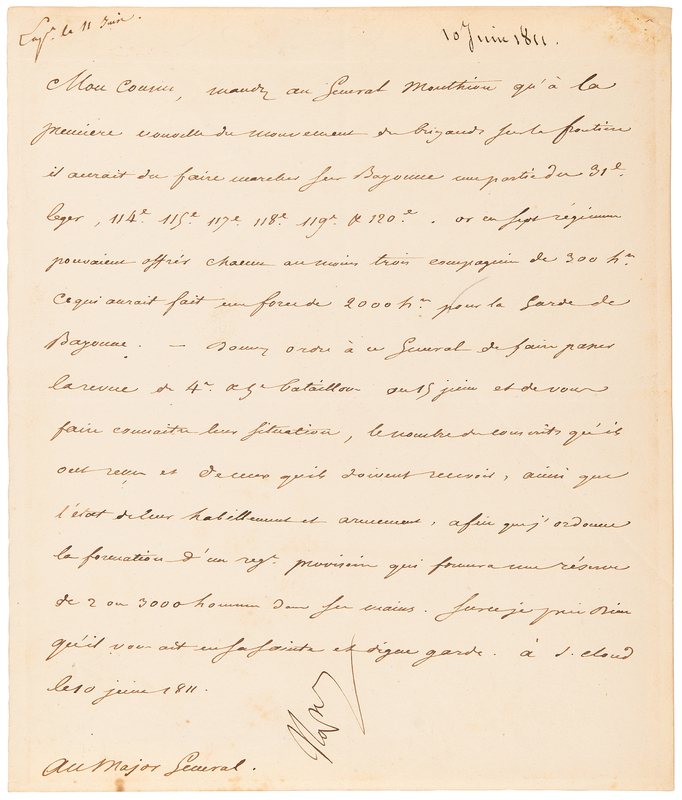 Expé. le 11 Juin.
10 Juin 1811.
Mon Cousin, mandez au General Monthion qu'à la
premiere nouvelle du mouvement des brigands sur la frontiere
il aurait du faire marcher sur Bayonne une partie du 31e.
leger, 114e. 115e. 117e. 118e. 119e. & 120e. or ces sept régimens
pouvaient offrir chacun au moins trois compagnies de 300 hes.
Ce qui aurait fait une force de 2000 hes. pour la Garde de
Bayonne. — Donnez ordre à ce General de faire passer
la revue des 4e. & 5e. bataillons au 15 juin et de vous
faire connaitre leur situation, le nombre de conscrits qu'ils
ont reçu et de ceux qu'ils doivent recevoir, ainsi que
l'état de leur habillement et armement, afin que j'ordonne
la formation d'un regt. provisoire qui formera une réserve
de 2 ou 3000 hommes dans ses mains. Surce je prie Dieu
qu'il vous ait en sa sainte et digne garde. à S. Cloud
le 10 juin 1811.
Nap
Au Major General.